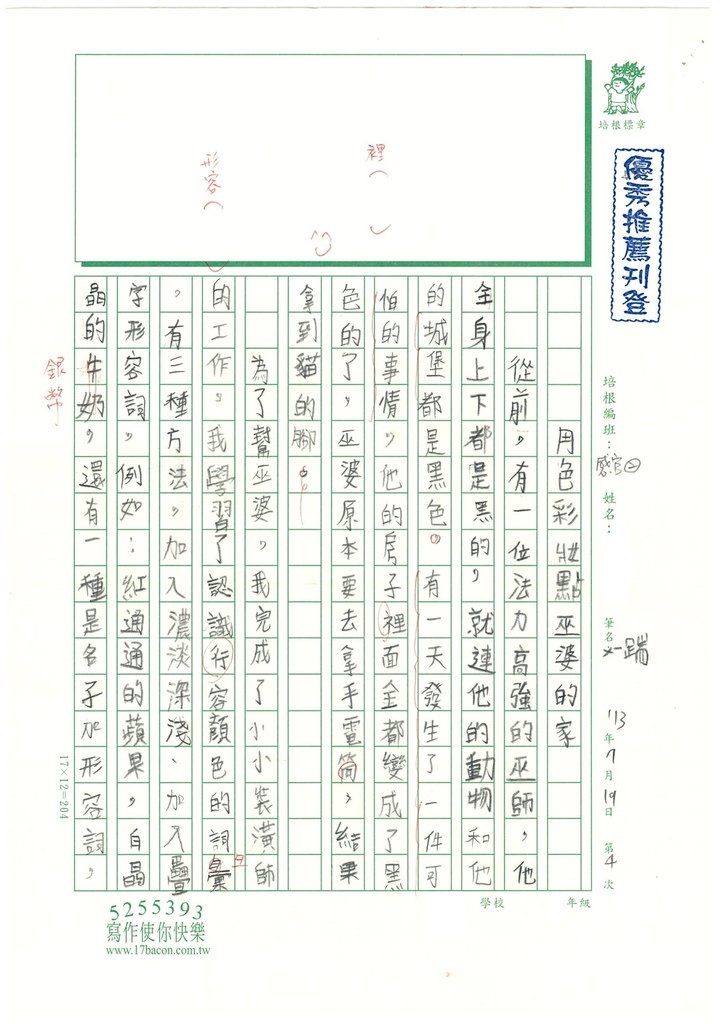 培根標章
優秀推薦刊登
培根編班：感官
姓名：
筆名
'13年7月19日 第4次
學校 年級
用色彩妝點巫婆的家
從前，有一位法力高強的巫師，他
全身上下都是黑的，就連他的動物和他
的城堡都是黑色。有一天發生了一件可
怕的事情，他的房子裡面全都變成了黑
色的了，巫婆原本要去拿手電筒，結果
拿到貓的腳。
為了幫巫婆，我完成了小小裝潢師
的工作。我學習了認識行容顏色的詞彙
，有三種方法，加入濃淡深淺、加入疊
字形容詞，例如：紅通通的蘋果，白晶
晶的牛奶，還有一種是名子加形容詞，
裡
形容
銀幣
17×12=204
5255393
寫作使你快樂
www.17bacon.com.tw